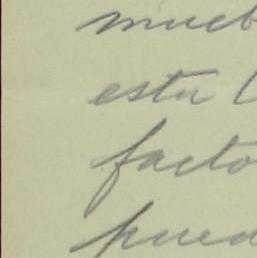 much
esta
facto
pued